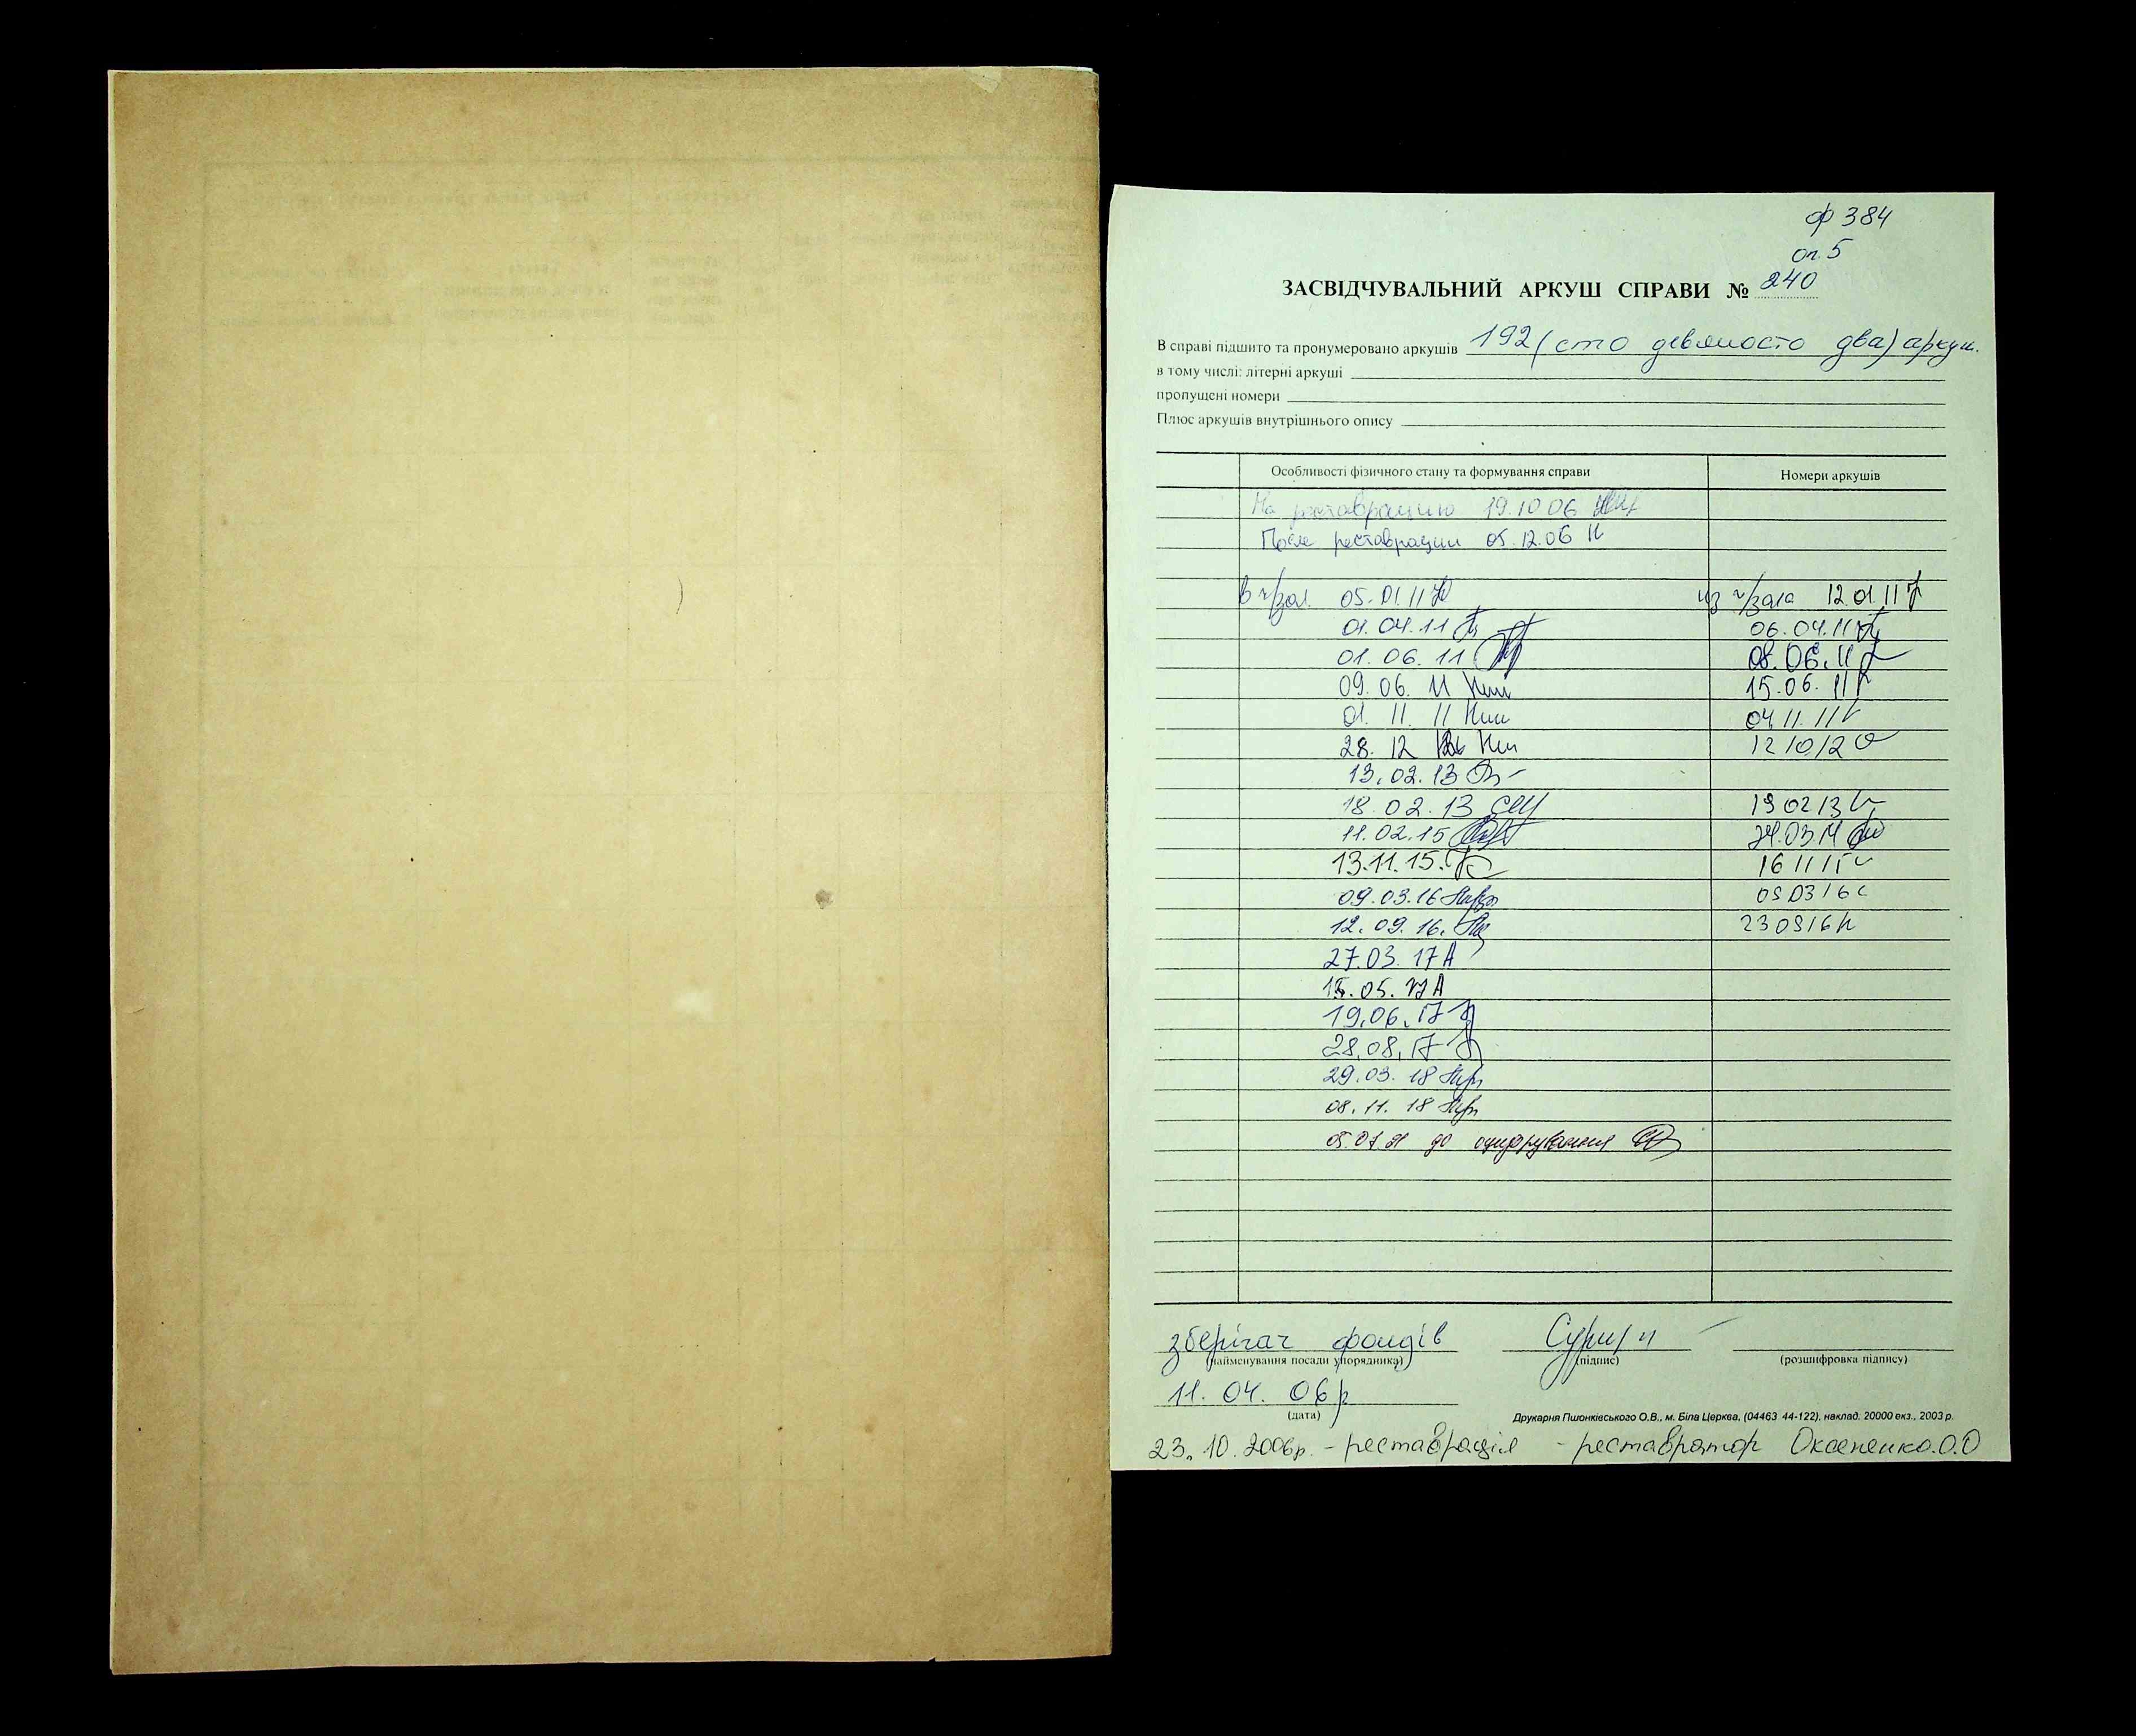 ф 384
оп. 5
ЗАСВІДЧУВАЛЬНИЙ АРКУШ СПРАВИ № 240
В справі підшито та пронумеровано аркушів 192 (сто девяносто два) аркуш.
в тому числі: літерні аркуші
пропущені номери
Плюс аркушів внутрішнього опису
Особливості фізичного стану та формування справи Номери аркушів
На реставрацию 19.10 06
После реставрации 05.12.06
в ч/зал 05.01.11 из ч/зала 12.01.11
01.04.11 06.04.11
01.06.11 08.06.11
09.06.11 15.06.11
01.11.11 04.11.11
28.12 12 10 12
13.02.13
18.02.13 19 02 13
11.02.15 24.03
13.11.15 16 11 15
09.03.16 09 03 16
12.09.16 23 09 16
27.03.17
15.05.17
19.06.17
28.08.17
29.03.18
08.11.18
05.07.21 до оцифрування
зберігач фондів
(найменування посади упорядника) (підпис) (розшифровка підпису)
11.04.06р
(дата)
Друкарня Пшонківського О.В., м. Біла Церква, (04463 44-122), наклад. 20000 екз., 2003 р.
23.10.2006р. - реставрація - реставратор Оксененко.О.О